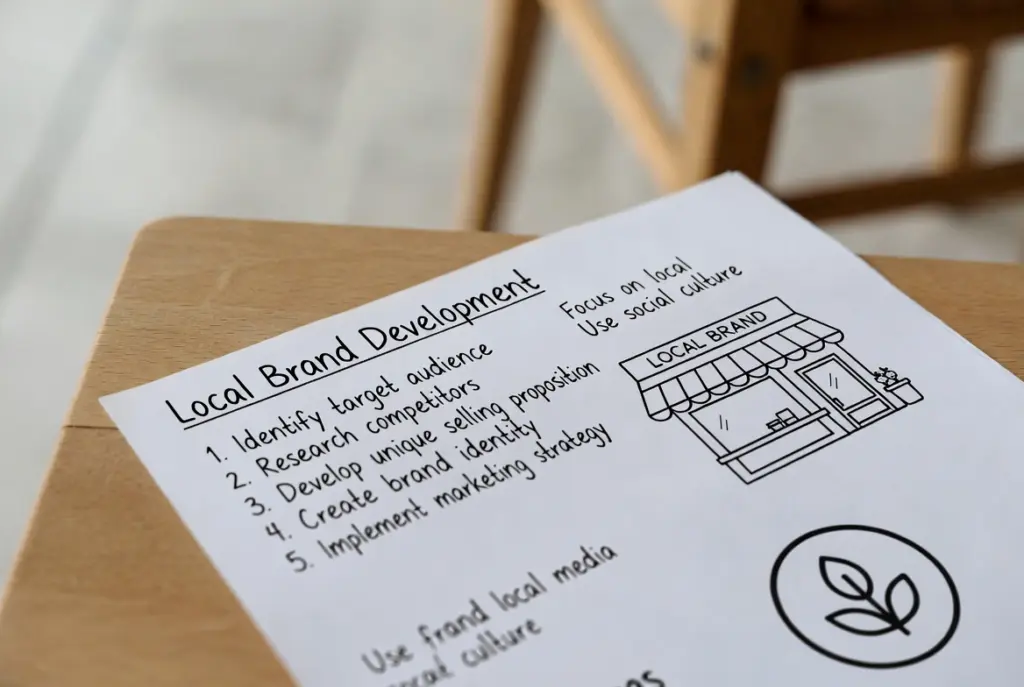 Local Brand Development
1. Identify target audience
2. Research competitors
3. Develop unique selling proposition
4. Create brand identity
5. Implement marketing strategy
Focus on local
Use social culture
LOCAL BRAND
Use frand local media
culture